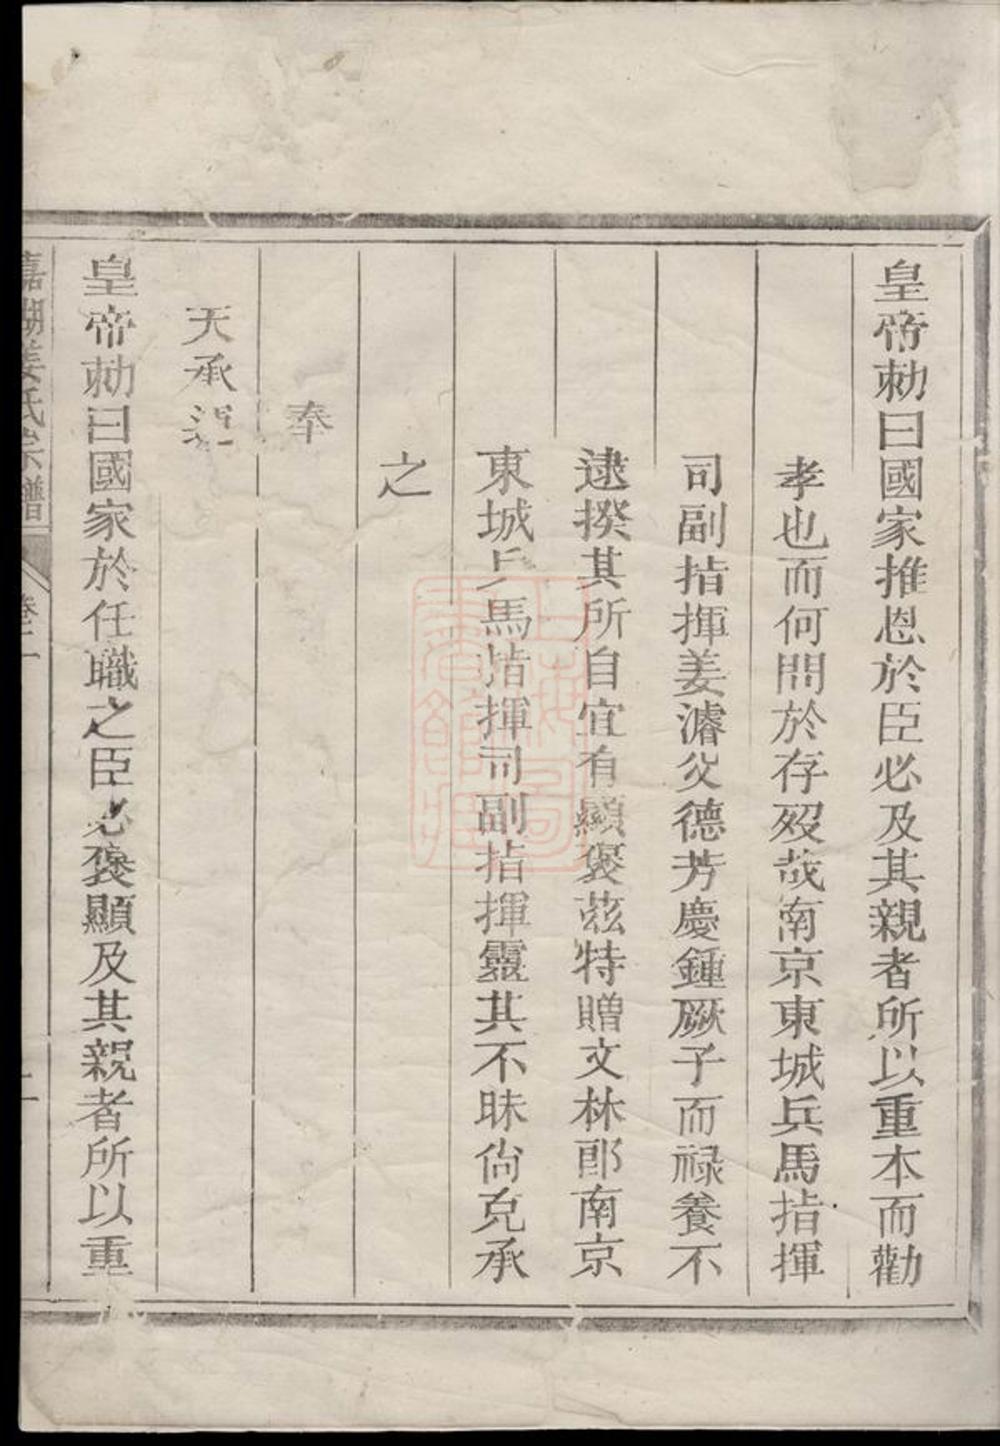 皇帝勅曰國家推恩於臣必及其親者所以重本而勸
孝也而何間於存歿哉南京東城兵馬指揮
司副指揮姜濬父德芳慶鍾厥子而祿養不
逮揆其所自宜有顯褒茲特贈文林郎南京
東城兵馬指揮司副指揮靈其不昧尚克承
之
奉
天承運
皇帝勅曰國家於任職之臣必褒顯及其親者所以重
嘉湖姜氏宗譜 卷一 二
上海圖書館藏